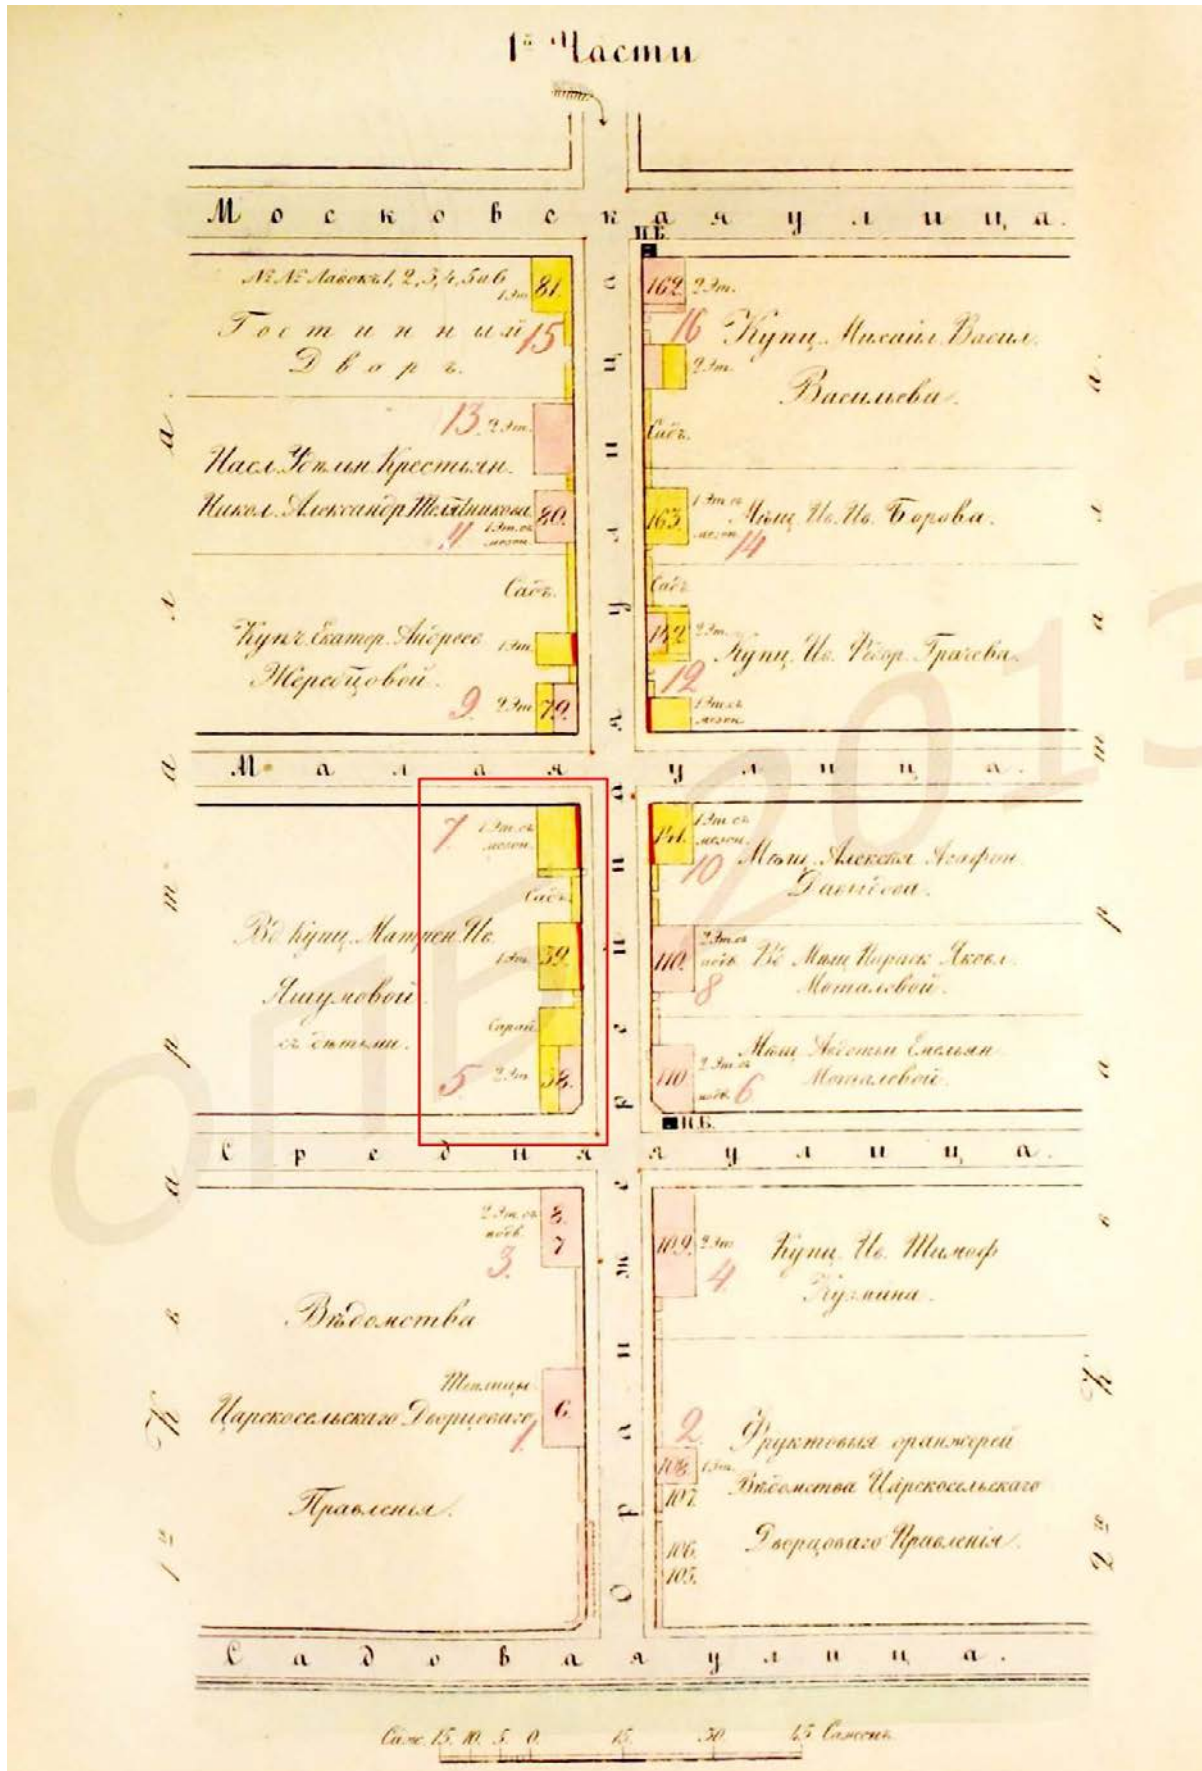 1й Части
Московская улица.
П.Б.
№№ Лавокъ 1, 2, 3, 4, 5 и 6
1 Эт.
81.
Гостинный
15
Дворъ.
162.
2 Эт.
16
Купц. Михаил. Васил.
Васильева.
2 Эт.
Садъ.
13.
2 Эт.
Насл. Крестьян.
Никол. Александр.
80.
1 Эт. съ
мезон.
163.
1 Эт. съ
мезон.
Мѣщ. Ив. Ив. Борова.
14
Садъ.
Садъ.
Купч. Екатер. Андреев.
Жеребцовой.
1 Эт.
9.
2 Эт.
79.
142
2 Эт.
Купц. Ив. Ѳедор. Грачева.
12
1 Эт. съ
мезон.
Малая улица.
7.
1 Эт. съ
мезон.
Садъ.
Вд. Купц. Матрен. Ив.
1 Эт.
39.
Яшумовой
съ дѣтьми.
Сарай.
5
2 Эт.
38.
141.
1 Эт. съ
мезон.
10
Мѣщ. Алексѣя Агафон.
Давыдова.
110.
2 Эт. съ
подв.
8
Вд. Мѣщ. Параск. Яковл.
Моталевой.
110
2 Эт. съ
подв.
6
Мѣщ. Авдотьи Емельян.
Моталевой.
П.Б.
Средняя улица.
2 Эт. съ
подв.
3.
8.
7
Вѣдомства
Теплицы
Царскосельскаго Дворцоваго
1.
6.
Правленія.
109.
2 Эт.
4
Купц. Ив. Тимоф.
Кузмина.
2.
108.
1 Эт.
107.
106.
105.
Фруктовыя оранжерей
Вѣдомства Царскосельскаго
Дворцоваго Правленія.
Садовая улица.
Оранжерейная улица
1й Кварталъ
2й Кварталъ
Саж. 15. 10. 5. 0. 15. 30. 45 Саженъ.
2013